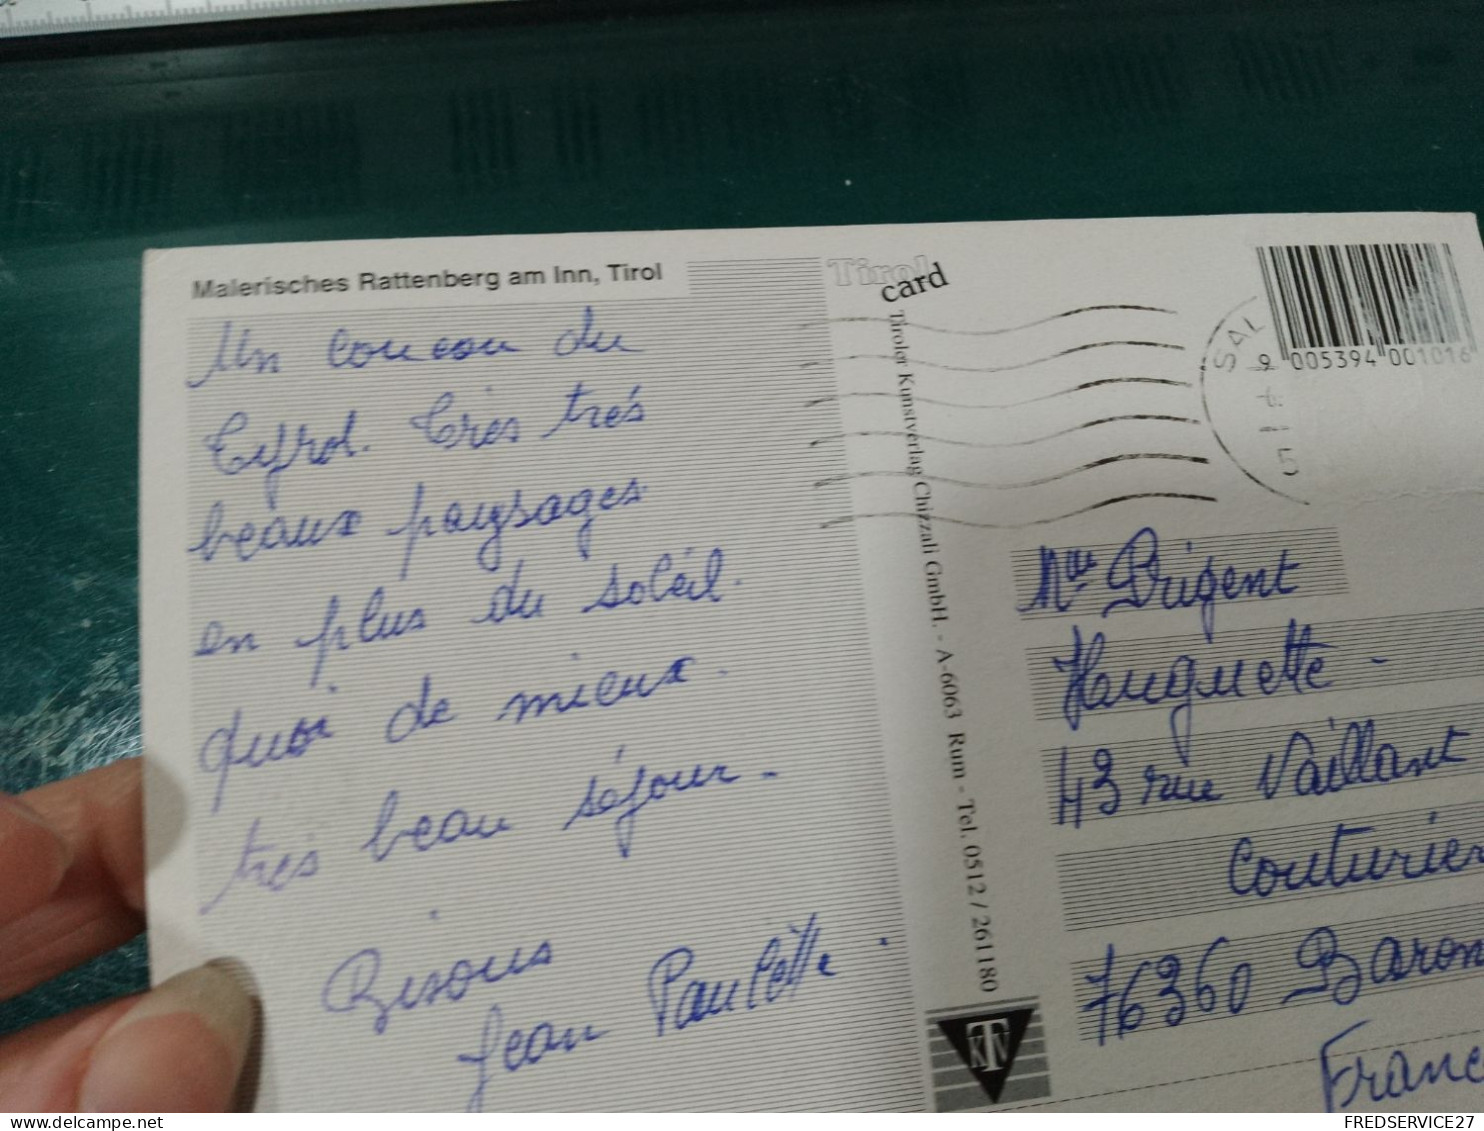 Malerisches Rattenberg am Inn, Tirol
Un coucou du
Tyrol. Très très
beaux paysages
en plus du soleil.
quoi de mieux.
très beau séjour.
Bisous
Jean Paulette.
Tirol
card
Tiroler Kunstverlag Chizzali GmbH. - A-6063 Rum - Tel. 0512 / 261180
KTV
SAL
5
9 005394 001016
Mlle Prigent
Huguette -
43 rue Vaillant
Couturier
76360 Baron
France
FREDSERVICE27